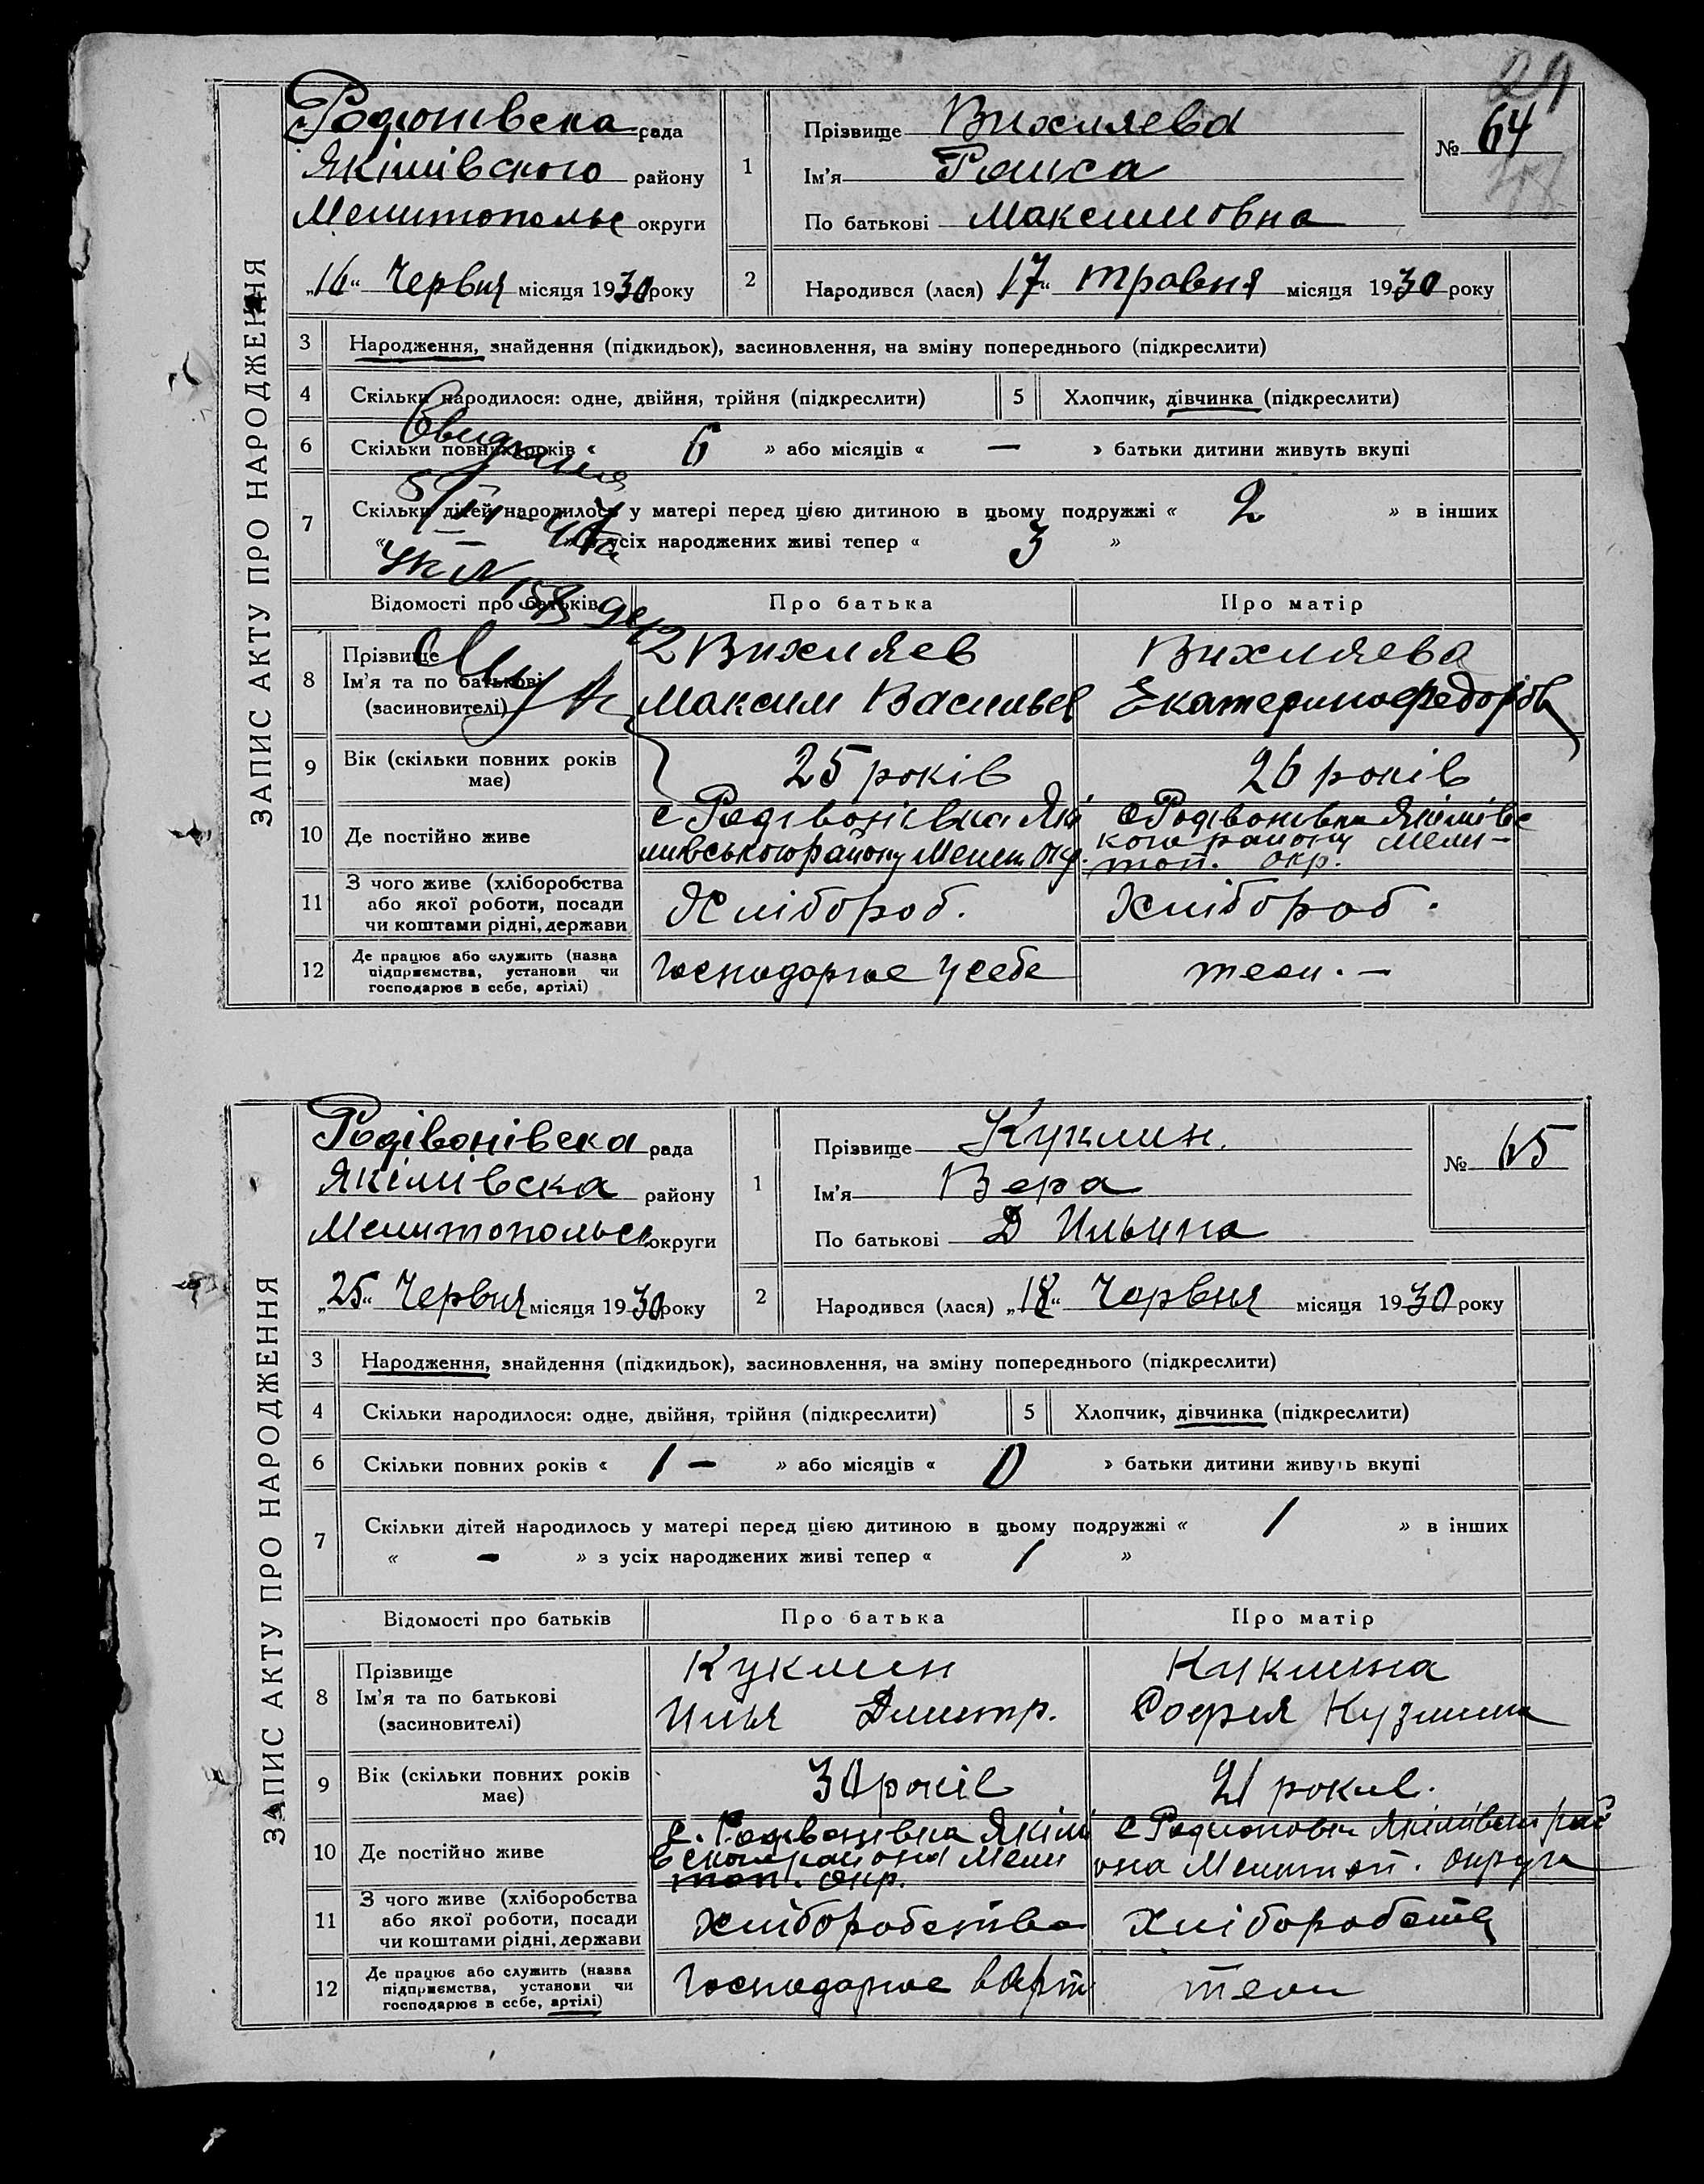 29
ЗАПИС АКТУ ПРО НАРОДЖЕННЯ
Родионівска рада
Якімівского району
Мелитопольс округи
„16“ Червня місяця 1930 року
1
Прізвище Вихиляева
Ім'я Раиса
По батькові Максимовна
№ 64
2
Народився (лася) 17“ травня місяця 1930 року
3 Народження, знайдення (підкидьок), засиновлення, на зміну попереднього (підкреслити)
4 Скільки народилося: одне, двійня, трійня (підкреслити) 5 Хлопчик, дівчинка (підкреслити)
6 Скільки повних років « 6 » або місяців « — » батьки дитини живуть вкупі
7 Скільки дітей народилось у матері перед цією дитиною в цьому подружжі « 2 » в інших
« » з усіх народжених живі тепер « 3 »
Відомості про батьків Про батька Про матір
8 Прізвище
Ім'я та по батькові
(засиновителі)
Вихиляев
Максим Васильев
Вихиляева
Екатерина Федоровн
9 Вік (скільки повних років
має)
25 років
26 років
10 Де постійно живе
с Родівонівка Які
мивського району Мелит Окр.
с Родівонівка Якімівс
кого району Мели-
топ. окр.
11 З чого живе (хліборобства
або якої роботи, посади
чи коштами рідні, держави
Хлібороб.
Хлібороб.
12 Де працює або служить (назва
підприємства, установи чи
господарює в себе, артілі)
Господарює у себе
теж. —
ЗАПИС АКТУ ПРО НАРОДЖЕННЯ
Родівонівска рада
Якімівска району
Мелитопольск округи
„25“ Червня місяця 1930 року
1
Прізвище Куклин.
Ім'я Вера
По батькові Д Ильина
№ 65
2
Народився (лася) „18“ Чорвня місяця 1930 року
3 Народження, знайдення (підкидьок), засиновлення, на зміну попереднього (підкреслити)
4 Скільки народилося: одне, двійня, трійня (підкреслити) 5 Хлопчик, дівчинка (підкреслити)
6 Скільки повних років « 1 – » або місяців « 0 » батьки дитини живуть вкупі
7 Скільки дітей народилось у матері перед цією дитиною в цьому подружжі « 1 » в інших
« – » з усіх народжених живі тепер « 1 »
Відомості про батьків Про батька Про матір
8 Прізвище
Ім'я та по батькові
(засиновителі)
Куклин
Илья Дмитр.
Куклина
Софея Кузмина
9 Вік (скільки повних років
має)
30 років
21 роков.
10 Де постійно живе
с. Родівонівка Якімі
вского района Мели
топ. окр.
с Родионовка Якімівск рай
она Мелитоп. округа
11 З чого живе (хліборобства
або якої роботи, посади
чи коштами рідні, держави
хліборобства
хліборобств
12 Де працює або служить (назва
підприємства, установи чи
господарює в себе, артілі)
Господарює в Арті
теж